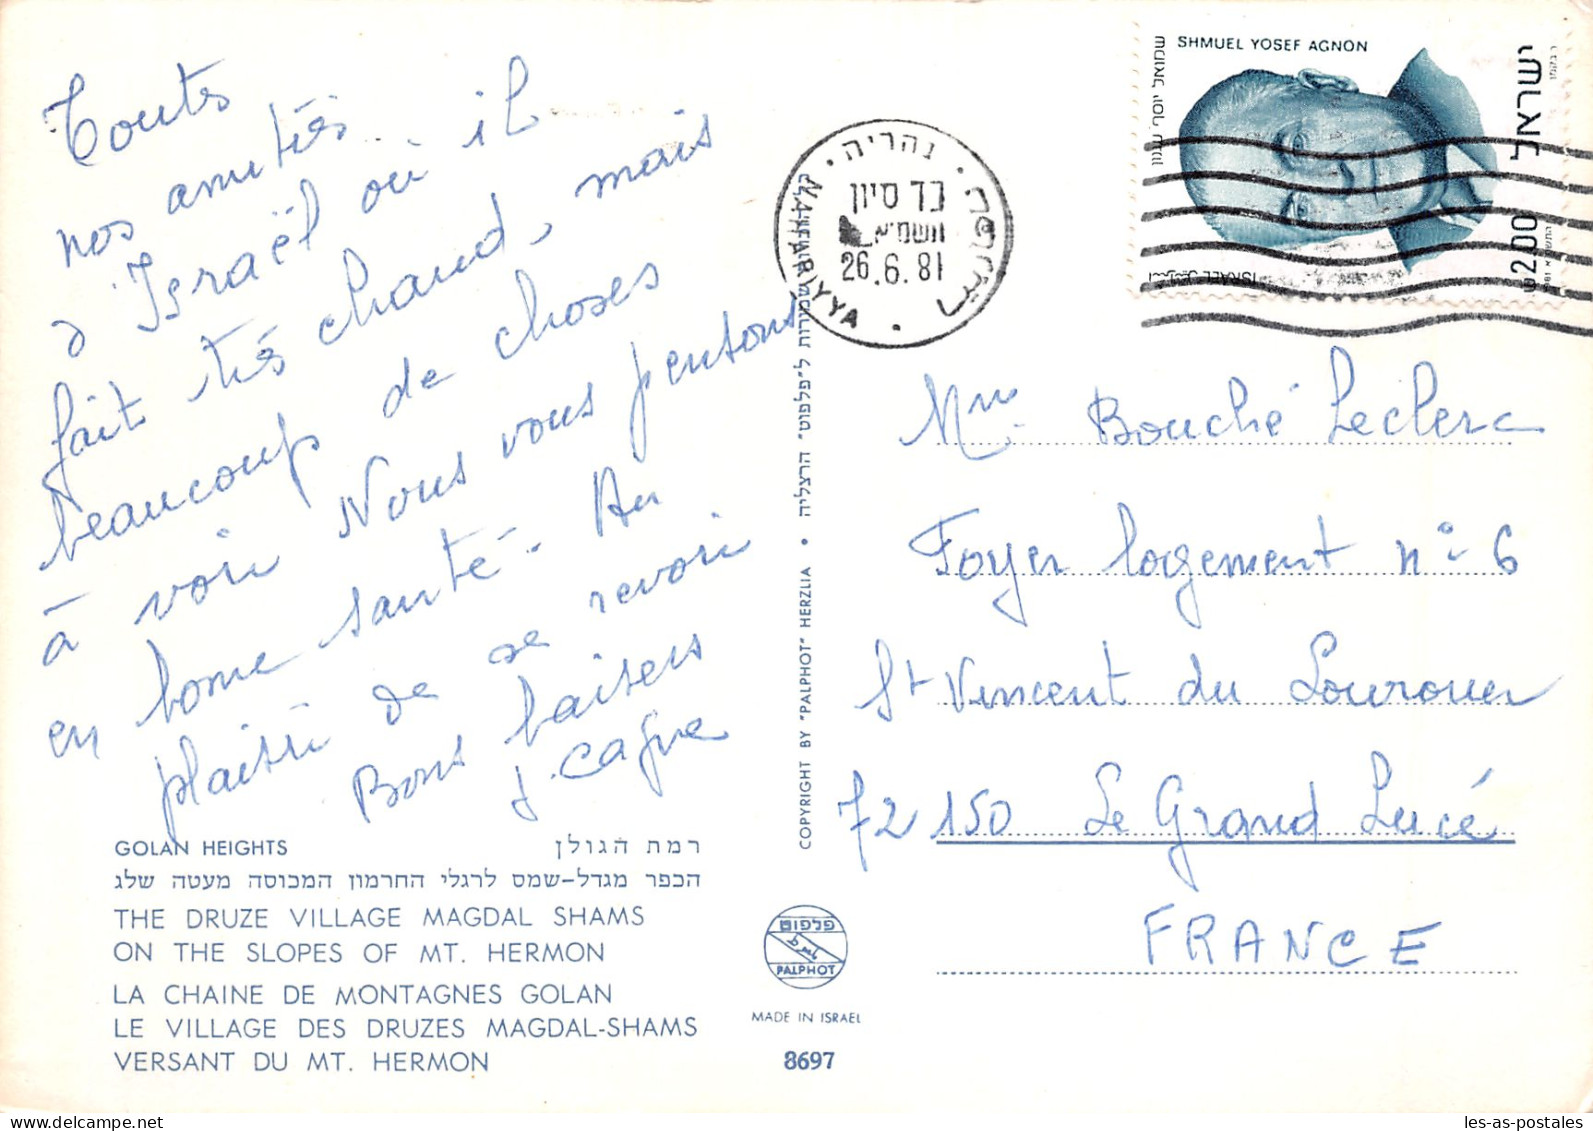 Toutes
nos amitiés
d'Israël où il
fait très chaud, mais
beaucoup de choses
à voir Nous vous pensons
en bonne santé - Au
plaisir de se revoir
Bons baisers
J. Cagne
GOLAN HEIGHTS רמת הגולן
הכפר מגדל-שמס לרגלי החרמון המכוסה מעטה שלג
THE DRUZE VILLAGE MAGDAL SHAMS
ON THE SLOPES OF MT. HERMON
LA CHAINE DE MONTAGNES GOLAN
LE VILLAGE DES DRUZES MAGDAL-SHAMS
VERSANT DU MT. HERMON
COPYRIGHT BY "PALPHOT" HERZLIA • שמורות ל"פלפוט" הרצליה
פלפוט
PALPHOT
MADE IN ISRAEL
8697
נהריה
כד סיון
תשמ"א
26.6.81
NAHARIYYA
SHMUEL YOSEF AGNON
שמואל יוסף עגנון
ישראל
2.00
ISRAEL
Mme Bouché Leclerc
Foyer logement n° 6
St Vincent du Lourouer
72150 Le Grand Lucé
FRANCE
les-as-postales